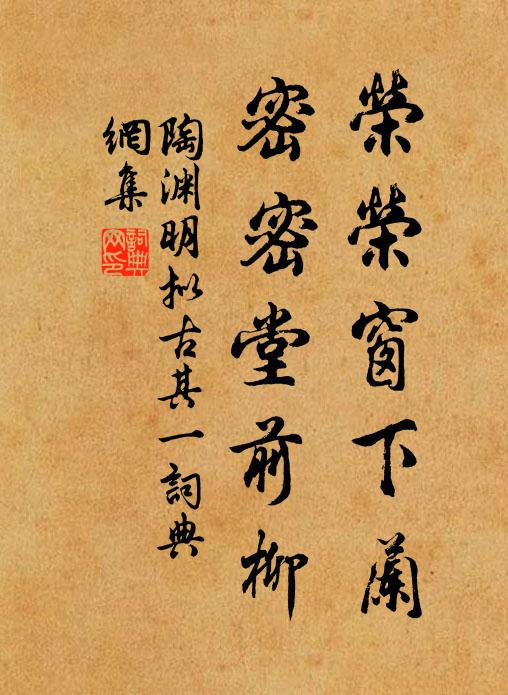 榮榮窗下蘭
密密堂前柳
陶淵明拟古其一詞典
網集
詞典
網印